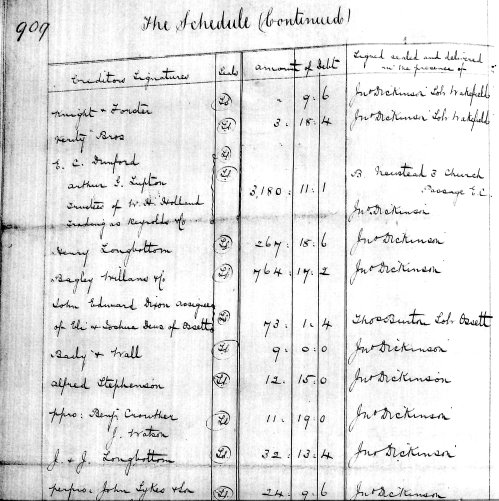 909
The Schedule (Continued)
Creditors Signatures Seals amount of Debt Signed sealed and delivered
in the presence of
Knight & Forster LS „ 9. 6 Jno Dickinson Solr Wakefield
Verity Bros LS 3. 18. 4 Jno Dickinson Solr Wakefield
E. C. Dunford LS
Arthur G. Lupton 3,180. 11. 1 B. Newstead 3 Church
Trustee of W. H. Holland Passage E.C.
Trading as Reynolds &Co Jno Dickinson
Henry Longbottom LS 267. 18. 6 Jno Dickinson
Bagley Willans &Co LS 764. 17. 2 Jno Dickinson
John Edward Dixon assignee
of Eli & Joshua Dews of Ossett LS 73. 1. 4 Thos Burton Solr Ossett
Bady & Wall LS 9. 0. 0 Jno Dickinson
Alfred Stephenson LS 12. 15. 0 Jno Dickinson
ppro: Benj. Crowther LS 11. 19. 0 Jno Dickinson
J. Watson
J. & J. Longbottom LS 32. 13. 4 Jno Dickinson
perpro: John Sykes & Son LS 24. 9. 6 Jno Dickinson